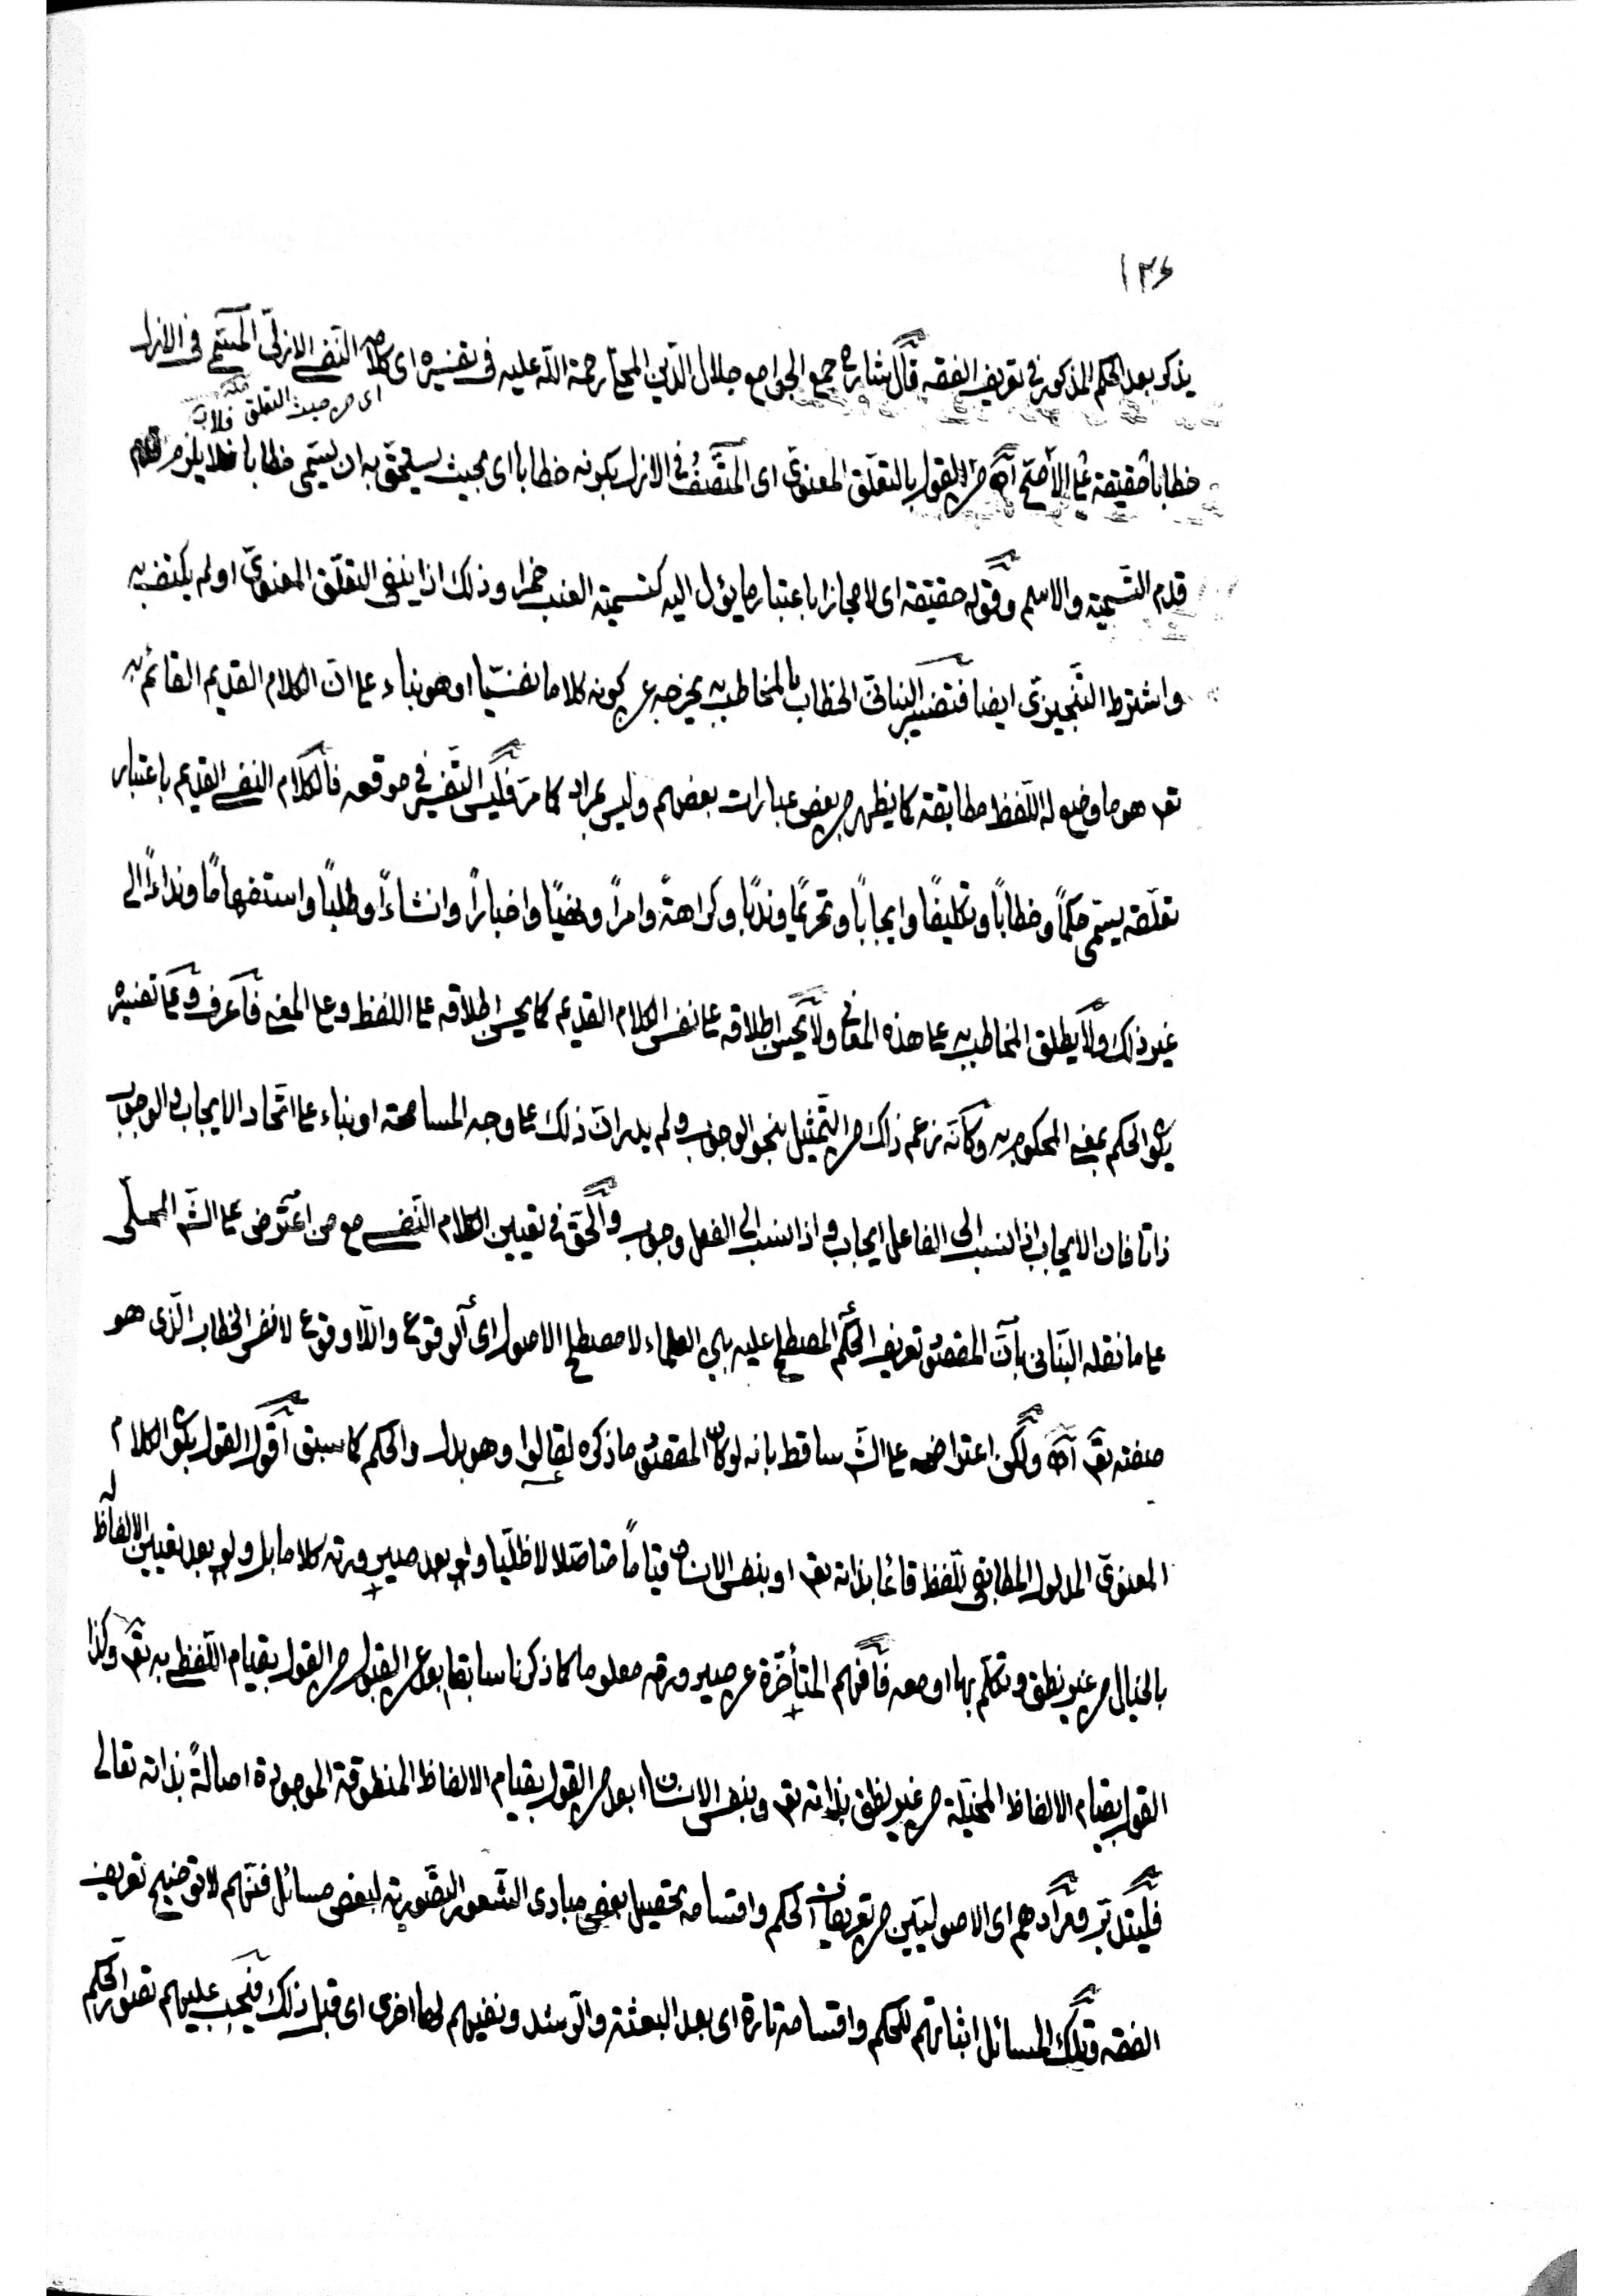 ١٣٤
يذكر بعد الحكم المذكور في تعريف الفقه قال شارح جمع الجوامع جلال الدين المحلي رحمة الله عليه في تفسيره اى كلامه النفسي الازلي المسمّى في الازل
اى من حيث التعلق
خطابا حقيقة على الأصح آه من القول بالتعلق المعنوي اى المتّصف في الازل بكونه خطابا اى بحيث يستحق به ان يسمّى خطابا فلا يلزم قدم
قدم التسمية والاسم وقوله حقيقة اى لا مجازا باعتبار ما يؤل اليه كتسمية العنب خمرا وذلك اذا ينفى التعلق المعنوي او لم يكتف به
واشترط التنجيزي ايضا فتفسير البناني الخطاب بالمخاطب به يخرجه عن كونه كلاما نفسيّا او هو بناء على ان الكلام القديم القائم به
تع هو ما وضع له اللفظ مطابقة كما يظهر من بعض عبارات بعضهم وليس بمراد كما مر فليس التفسير في موقعه فالكلام النفسي القديم باعتبار
تعلقه يسمّى حكماً وخطاباً وتكليفًا وايجاباً وتحريماً وندباً وكراهةً وامراً ونهياً واخباراً وانشاءً وطلباً واستفهاماً ونداءاً الى
غير ذلك ولا يطلق المخاطب به على هذه المعاني ولا يحسن اطلاقه على نفس الكلام القديم كما يحسن اطلاقه على اللفظ وعلى المعنى فاعرف وعلى تفسيره
يكون الحكم بمعنى المحكوم به وكأنه زعم ذاك من التمثيل بنحو الوجوب ولم يدر ان ذلك على وجه المسامحة او بناء على اتحاد الايجاب والوجوب
ذاتا فان الايجاب اذا نسب الى الفاعل ايجاب واذا نسب الى الفعل وجوب والحق في تعيين الكلام النفسي مع من اعترض على الش المحلّى
على ما نقله البنانى بأن المقصود تعريف الحكم المصطلح عليه بين العلماء لا مصطلح الاصول اى الوقوع واللاوقوع لا نفس الخطاب الذى هو
صفته تع آه ولكن اعتراضه على الش ساقط بانه لو كان المقصود ما ذكره لقالوا وهو بدل والحكم كما سبق اقول القول بكون الكلام
المعنوي المدلول المطابقي للفظ قائما بذاته تع او بنفس الانسان قياماً متاصّلا لا ظليّا ولو بعد صيرورته كلاما بل ولو بعد تعيين الالفاظ
بالخيال من غير نطق وتكلم بها او معه فافهم المتأخرة عن صيرورته معلوما كما ذكرنا سابقا بعد عن القبول من القول بقيام اللفظي به تع وكذا
القول بقيام الالفاظ المخيّلة من غير نطق بذاته تع وبنفس الانسان ابعد من القول بقيام الالفاظ المنطوقة الموجودة اصالةً بذاته تعالى
فليتدبّر ومرادهم اى الاصوليّين من تعريفات الحكم واقسامه تحصيل بعض مبادى الشعور التصورية لبعض مسائل فنهم لا توضيح تعريف
الفقه وتلك المسائل اثباتهم للحكم واقسامه تارة اى بعد البعثة والرشد ونفيهم لهما اخرى اى قبل ذلك فيجب عليهم تصور الحكم